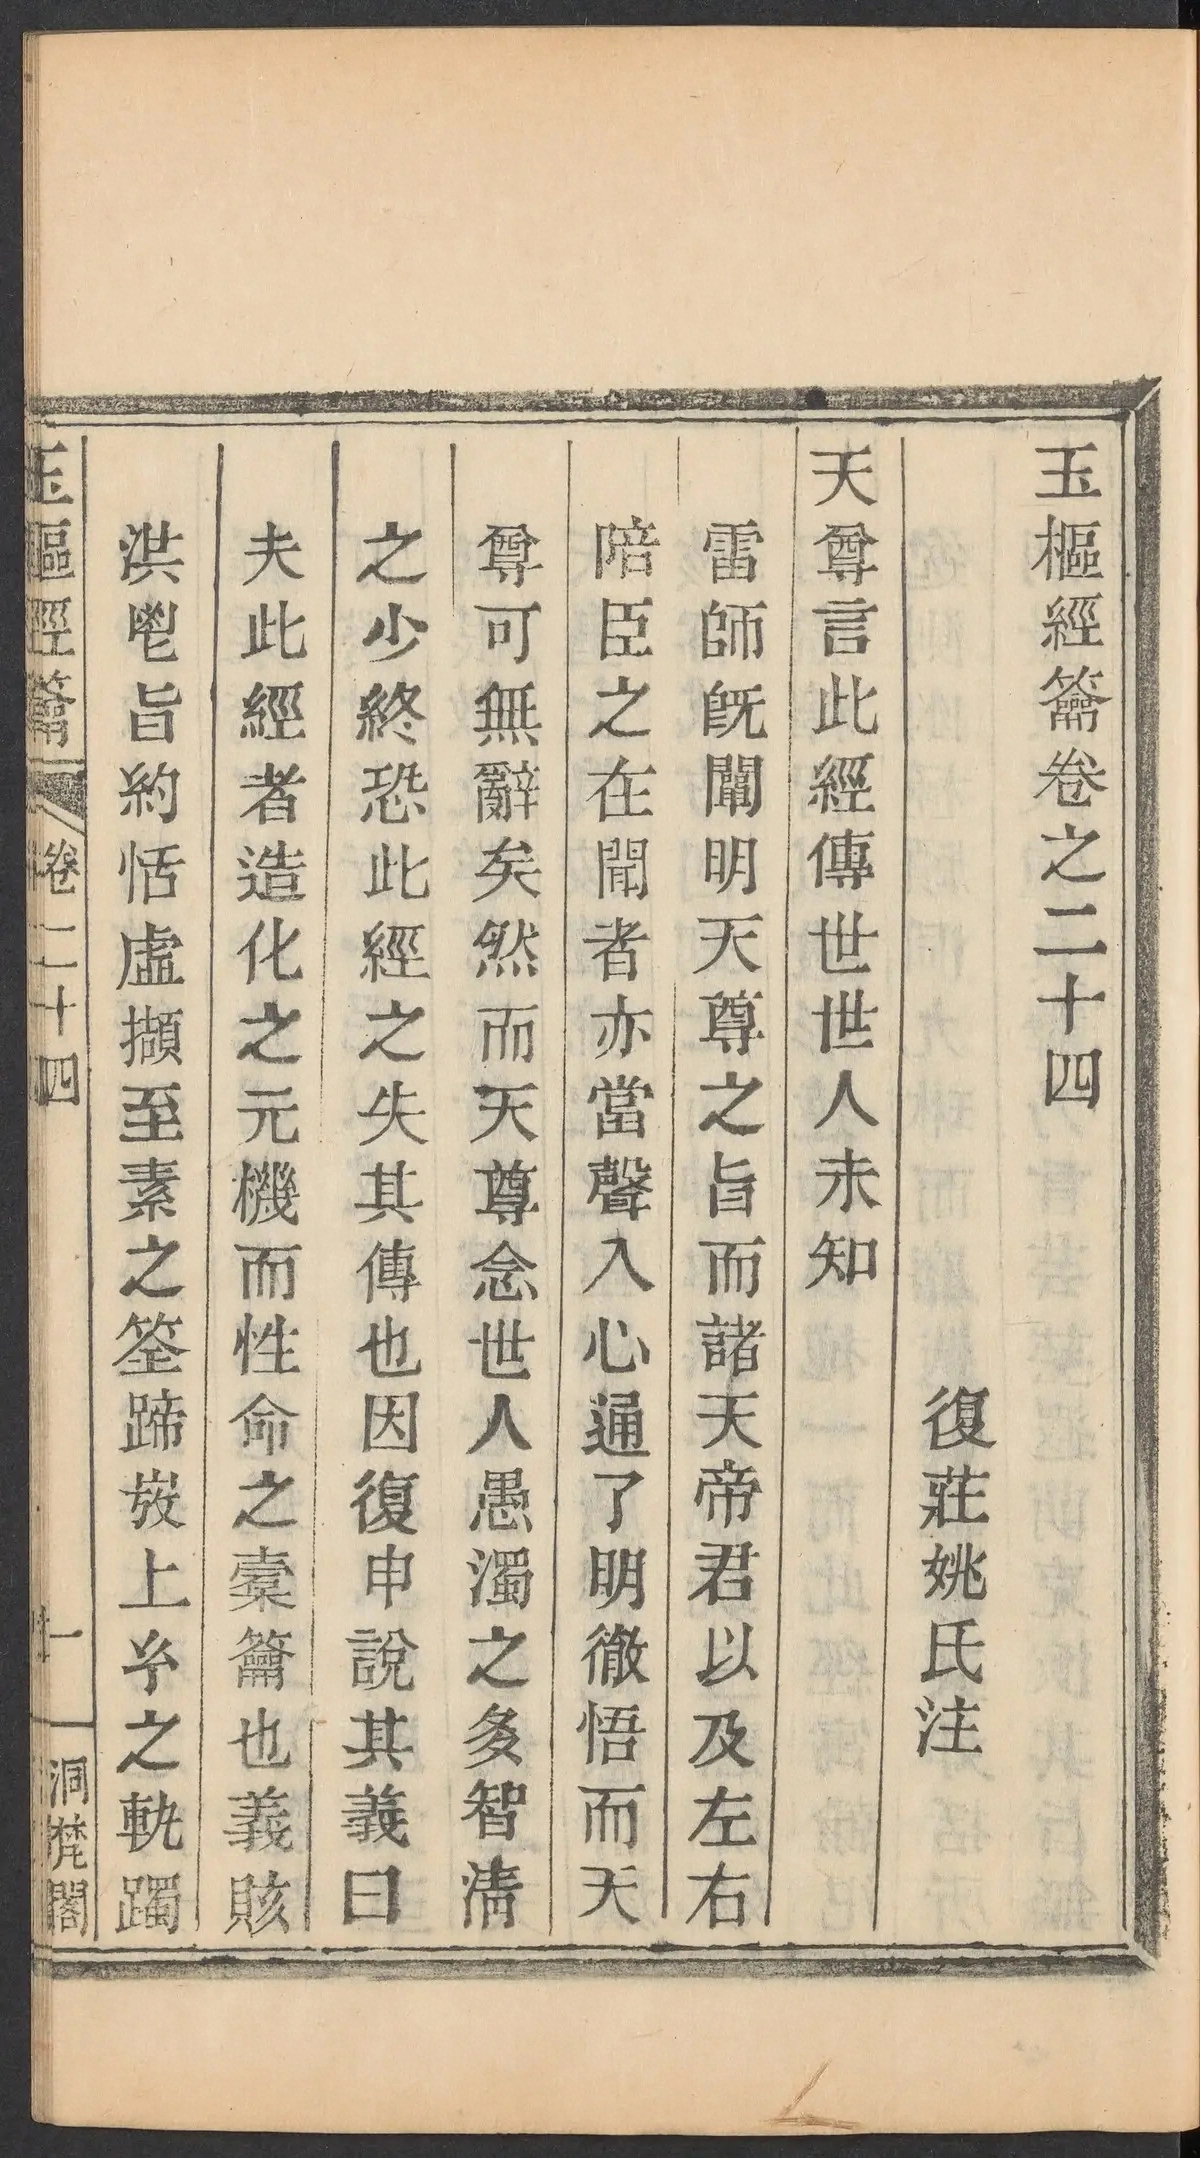 玉樞經籥卷之二十四
復莊姚氏注
天尊言此經傳世世人未知
雷師旣闡明天尊之旨而諸天帝君以及左右
陪臣之在聞者亦當聲入心通了明徹悟而天
尊可無辭矣然而天尊念世人愚濁之多智淸
之少終恐此經之失其傳也因復申說其義曰
夫此經者造化之元機而性命之橐籥也義賅
洪旨約恬虛擷至素之筌蹄上之軌躅
玉樞經籥
卷二十四
一
洞梵閣